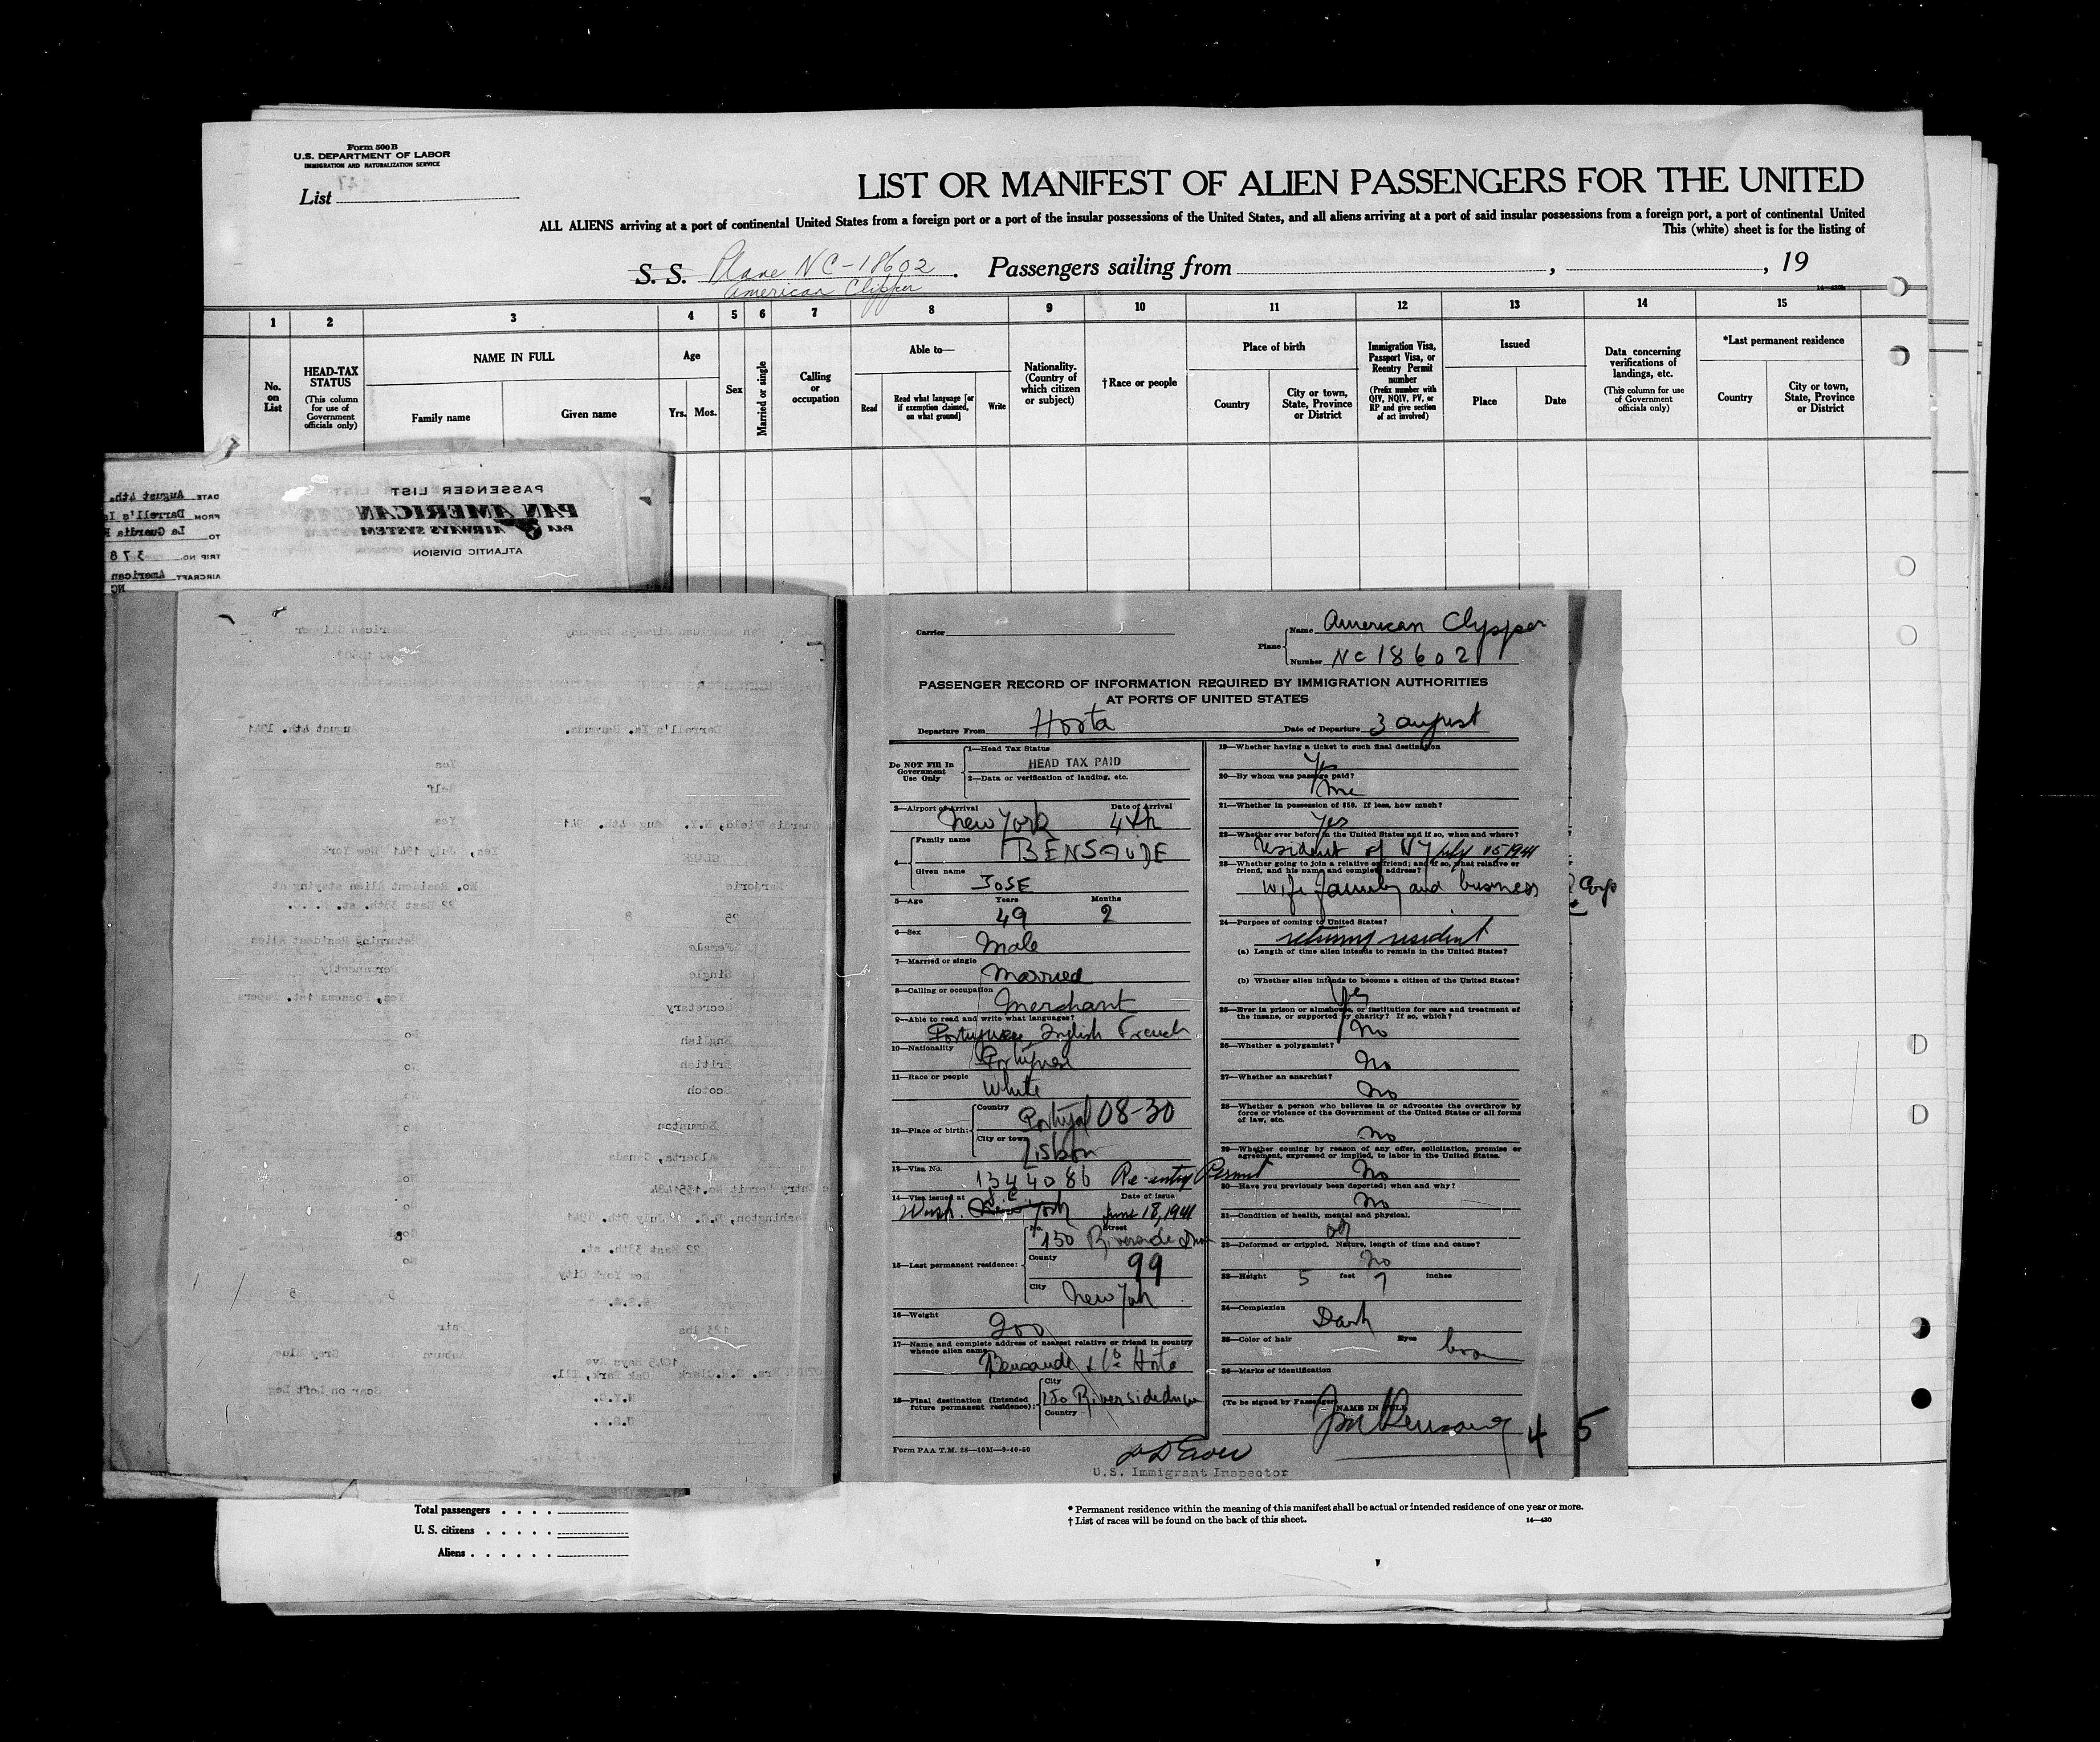 Form 500 B
U.S. DEPARTMENT OF LABOR
IMMIGRATION AND NATURALIZATION SERVICE
List
LIST OR MANIFEST OF ALIEN PASSENGERS FOR THE UNITED
ALL ALIENS arriving at a port of continental United States from a foreign port or a port of the insular possessions of the United States, and all aliens arriving at a port of said insular possessions from a foreign port, a port of continental United
This (white) sheet is for the listing of
S. S. Plane NC-18602. Passengers sailing from , , 19
American Clipper
14-430
1 2 3 4 5 6 7 8 9 10 11 12 13 14 15
No. on List
HEAD-TAX STATUS
(This column for use of Government officials only)
NAME IN FULL
Family name
Given name
Age
Yrs. Mos.
Sex
Married or single
Calling or occupation
Able to—
Read
Read what language [or if exemption claimed, on what ground]
Write
Nationality. (Country of which citizen or subject)
†Race or people
Place of birth
Country
City or town, State, Province or District
Immigration Visa, Passport Visa, or Reentry Permit number
(Prefix number with QIV, NQIV, PV, or RP and give section of act involved)
Issued
Place
Date
Data concerning verifications of landings, etc.
(This column for use of Government officials only)
*Last permanent residence
Country
City or town, State, Province or District
PASSENGER LIST
PAN AMERICAN
PAA AIRWAYS SYSTEM
ATLANTIC DIVISION
DATE August 4th.
FROM Darrell's Is
TO La Guardia F
TRIP NO. 378
AIRCRAFT American
NC
Darrell's Is. Bermuda. August 4th. 1941
Yes
Self
Yes
Guardia Field, N.Y. Aug 4th. 1941
Yes, July 1941 New York
CLARK
Marjorie
No. Resident Alien staying at
22 East 38th. st.
25 8
Female
Returning Resident Alien
Single
Permanently
Secretary
Yes, Possess 1st. Papers
English
No
British
No
Scotch
No
Edmonton
No
Alberta, Canada
Washington, D.C. July 9th. 1941
22 East 38th. st.
Good
New York City
No
U.S.A.
5 5
Fair
Auburn Grey Blue
Oak Park, Ill.
N.Y.C.
Scar on Left Leg
U.S.A.
Carrier
Plane
Name American Clipper
Number NC 18602
PASSENGER RECORD OF INFORMATION REQUIRED BY IMMIGRATION AUTHORITIES
AT PORTS OF UNITED STATES
Departure From Horta Date of Departure 3 august
Do NOT Fill In Government Use Only
1—Head Tax Status
HEAD TAX PAID
2—Data or verification of landing, etc.
3—Airport of Arrival Date of Arrival
New York 4th
4—
Family name
BENSAUDE
Given name
JOSE
5—Age Years Months
49 2
6—Sex
Male
7—Married or single
Married
8—Calling or occupation
Merchant
9—Able to read and write what languages?
Portuguese, English French
10—Nationality
Portuguese
11—Race or people
White
12—Place of birth:
Country
Portugal 08-30
City or town
Lisbon
13—Visa No.
1344086 Re-entry Permit
14—Visa issued at Date of issue
Wash. D.C. New York June 18, 1941
15—Last permanent residence:
No. Street
150 Riverside Drive
County
99
City
New York
16—Weight
200
17—Name and complete address of nearest relative or friend in country whence alien came
Bensaude & Co Horta
18—Final destination (Intended future permanent residence):
City
150 Riverside drive
Country
Form PAA T.M. 28—10M—9-40-50
U.S. Immigrant Inspector
19—Whether having a ticket to such final destination
Yes
20—By whom was passage paid?
Me
21—Whether in possession of $50. If less, how much?
Yes
22—Whether ever before in the United States and if so, when and where?
resident of NY July 15 1941
23—Whether going to join a relative or friend; and if so, what relative or friend, and his name and complete address?
wife family and business
24—Purpose of coming to United States?
returning resident
(a) Length of time alien intends to remain in the United States?
(b) Whether alien intends to become a citizen of the United States?
Yes
25—Ever in prison or almshouse, or institution for care and treatment of the insane, or supported by charity? If so, which?
No
26—Whether a polygamist?
No
27—Whether an anarchist?
No
28—Whether a person who believes in or advocates the overthrow by force or violence of the Government of the United States or all forms of law, etc.
no
29—Whether coming by reason of any offer, solicitation, promise or agreement, expressed or implied, to labor in the United States.
No
30—Have you previously been deported; when and why?
No
31—Condition of health, mental and physical.
32—Deformed or crippled. Nature, length of time and cause?
no
33—Height 5 feet 7 inches
34—Complexion
Dark
35—Color of hair Eyes
36—Marks of identification
(To be signed by Passenger)
NAME IN FULL
4 5
Total passengers . . . .
U. S. citizens . . . . .
Aliens . . . . . .
* Permanent residence within the meaning of this manifest shall be actual or intended residence of one year or more.
† List of races will be found on the back of this sheet.
14—430